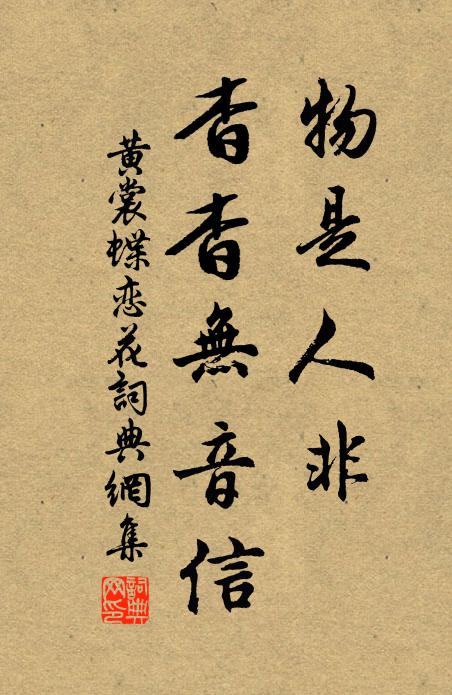 物是人非
杳杳無音信
黃裳蝶恋花詞典網集
詞典
网印